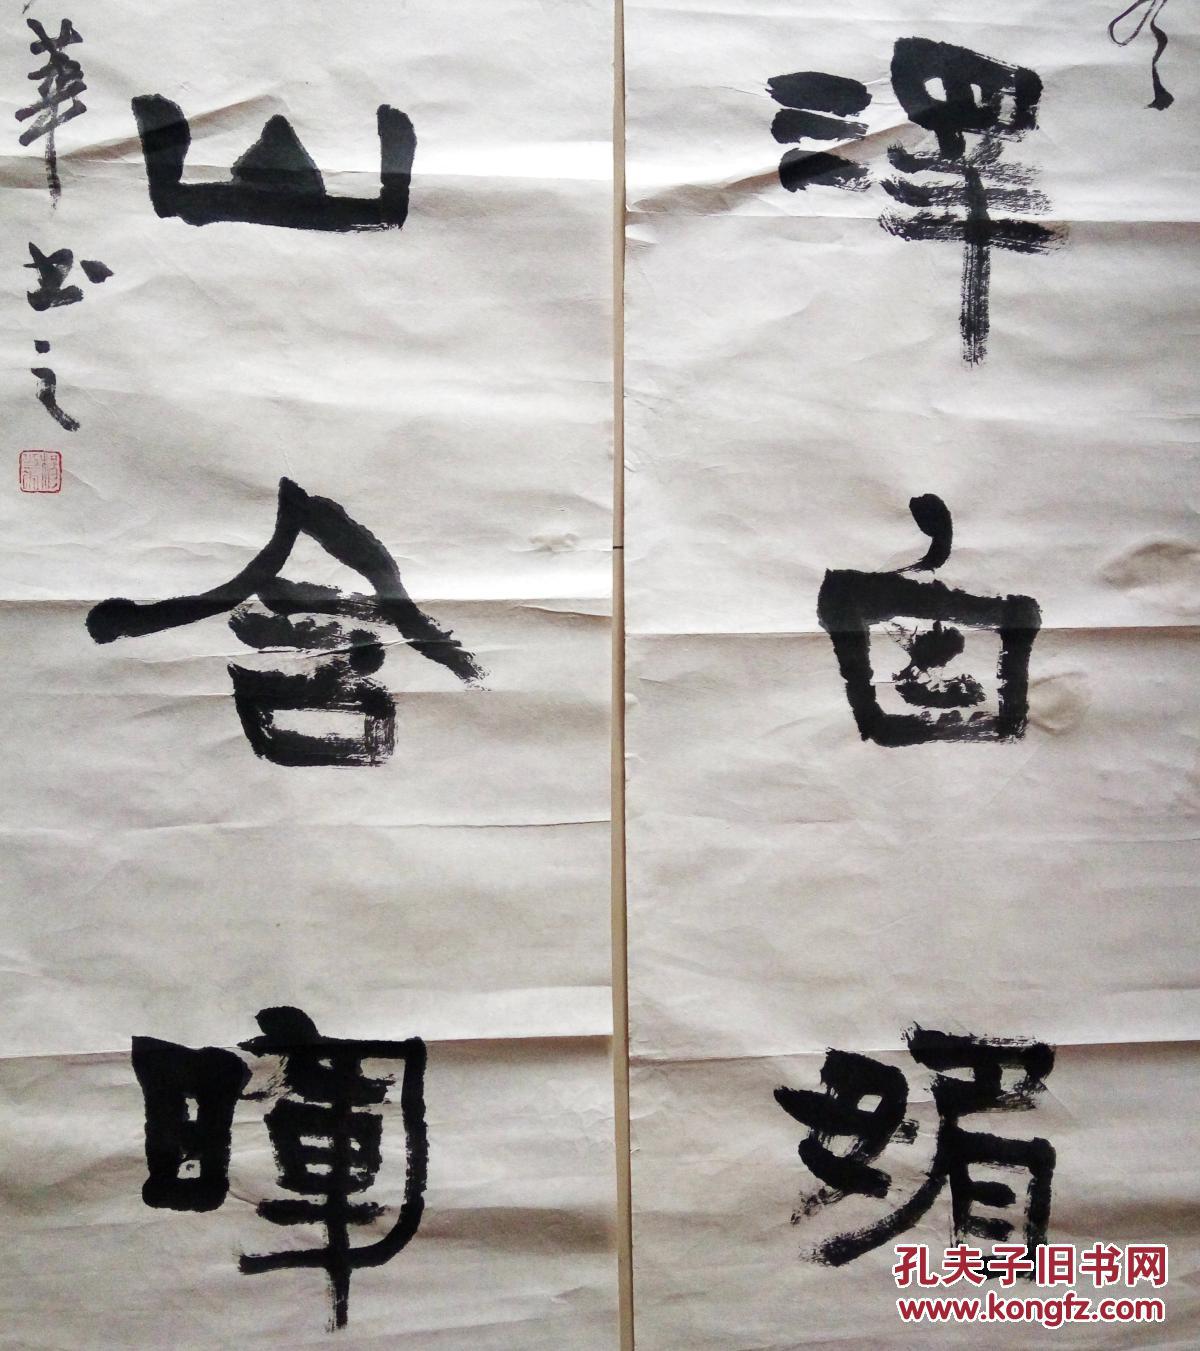 澤自媚
山含暉
華书之
孔夫子旧书网
www.kongfz.com